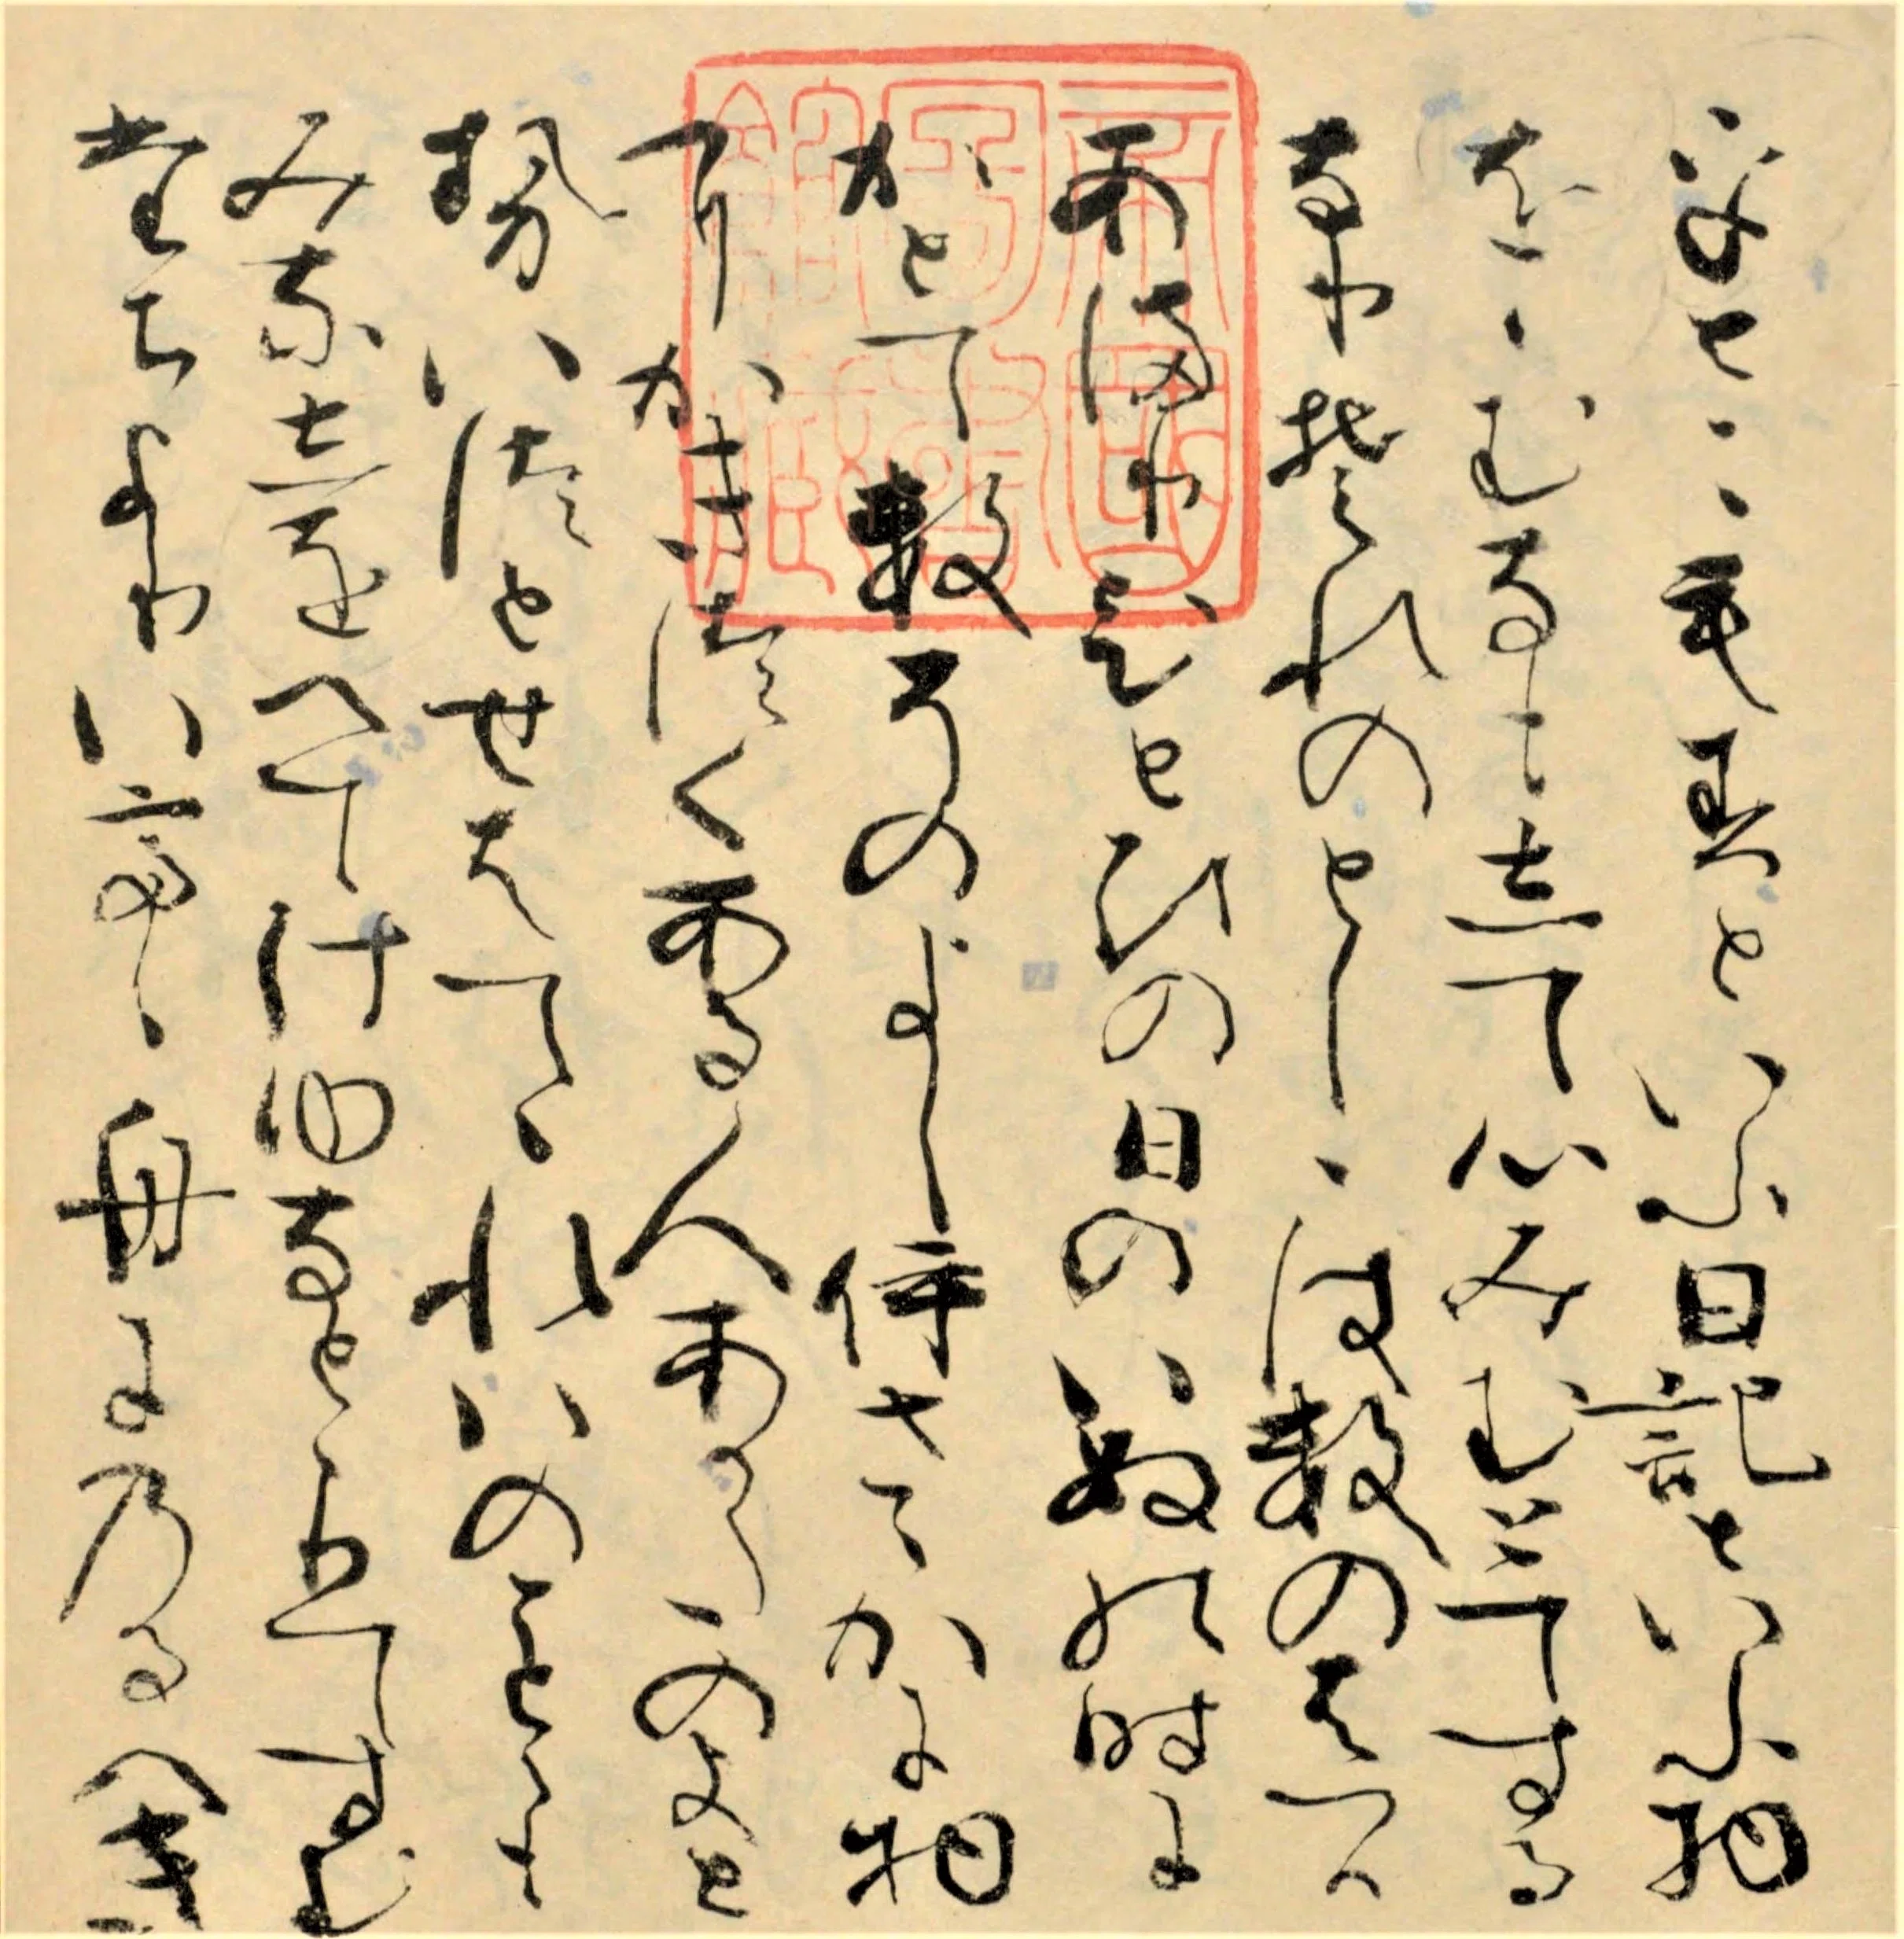 をとこもすといふ日記といふ物
をゝむなもして心みむとてする
なりそれのとしゝはすのはつか
あまりひとひの日のいぬの時に
かとてすそのよしいさゝかに物
にかきつくある人あかたのよと
せいつとせはてゝれいのことゝも
みなしをへてけゆなととりてすむ
たちよりいてゝ舟にのるへき
帝國圖書館藏